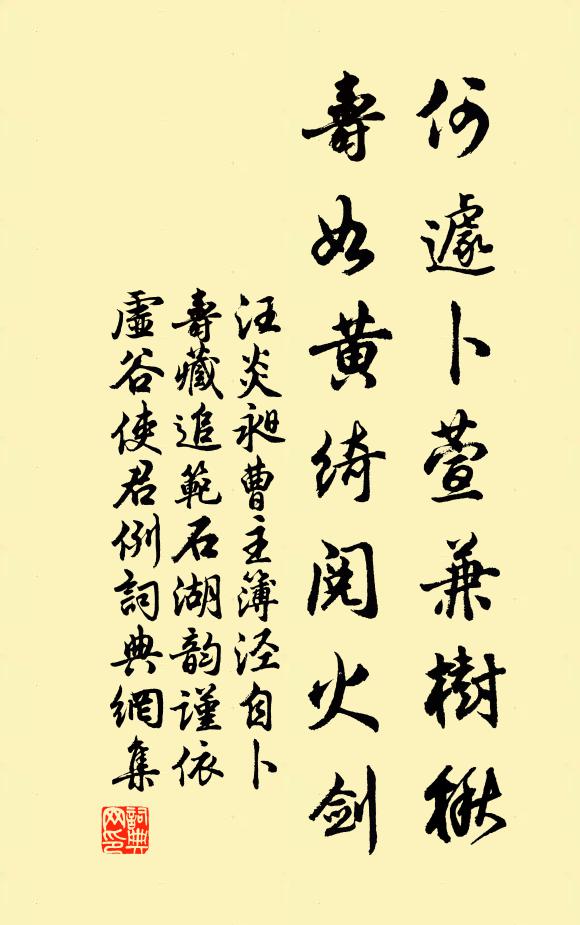 何遽卜萱兼樹楸
壽如黃綺閱火劍
汪炎昶曹主簿涇自卜
壽藏追範石湖韵謹依
虛谷使君例詞典網集
詞典
网印